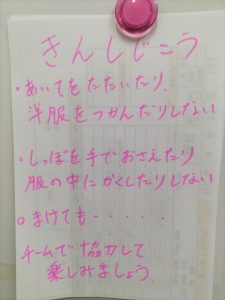 きんしじこう
・あいてをたたいたり、
洋服をつかんだりしない
・しっぽを手でおさえたり
服の中にかくしたりしない
○まけても・・・・・
チームで協力して
楽しみましょう。